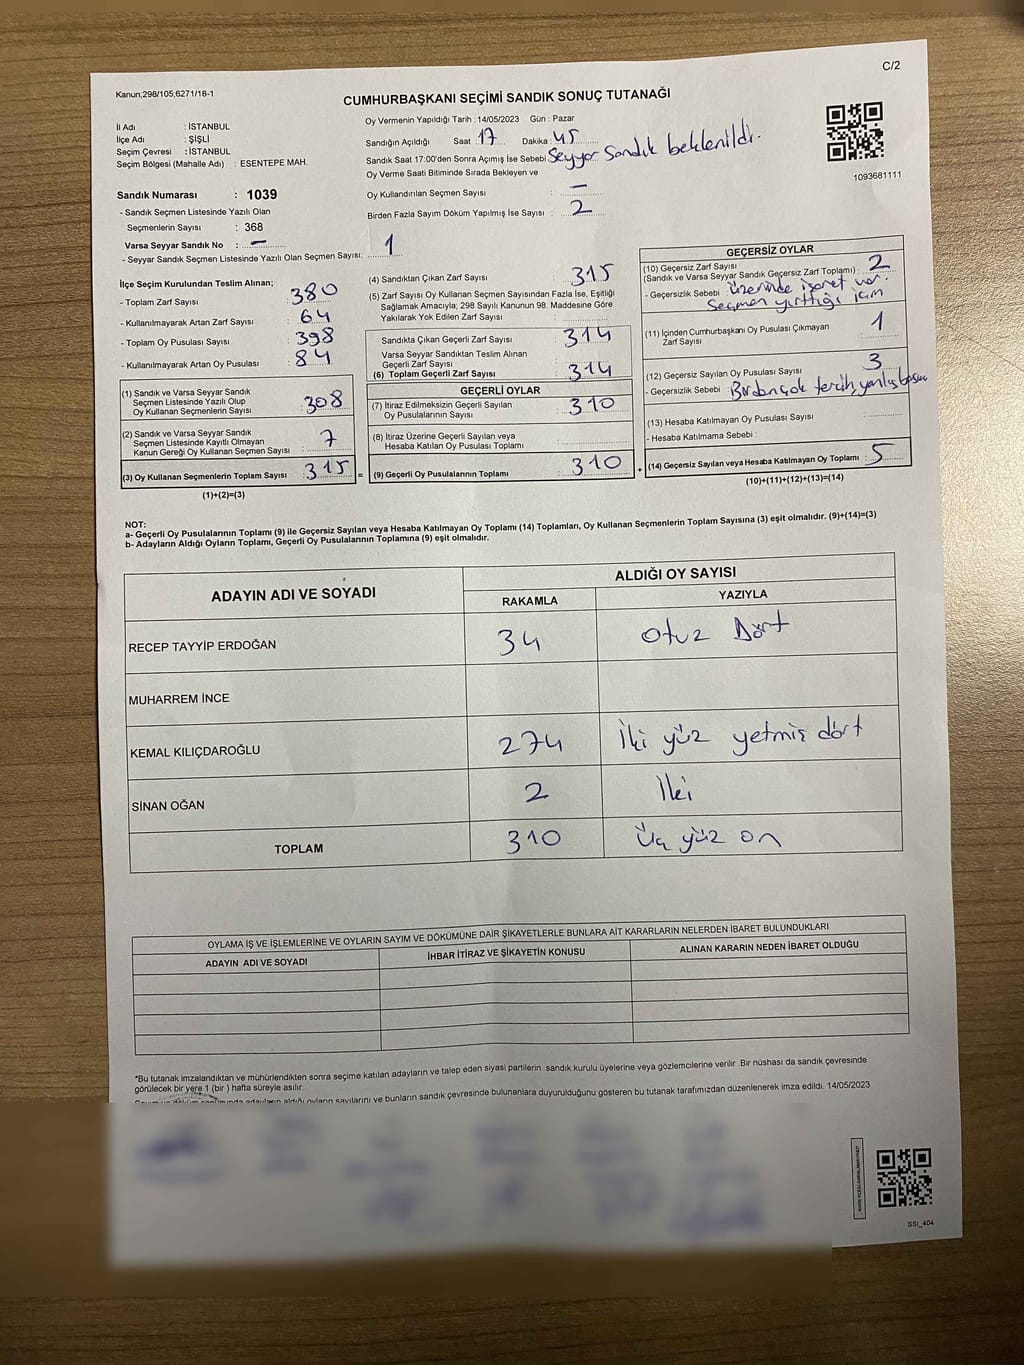 C/2
Kanun;298/105;6271/18-1
CUMHURBAŞKANI SEÇİMİ SANDIK SONUÇ TUTANAĞI
İl Adı : İSTANBUL
İlçe Adı : ŞİŞLİ
Seçim Çevresi : İSTANBUL
Seçim Bölgesi (Mahalle Adı) : ESENTEPE MAH.
Sandık Numarası : 1039
- Sandık Seçmen Listesinde Yazılı Olan
Seçmenlerin Sayısı : 368
Varsa Seyyar Sandık No : —
- Seyyar Sandık Seçmen Listesinde Yazılı Olan Seçmen Sayısı. 1
Oy Vermenin Yapıldığı Tarih : 14/05/2023 Gün : Pazar
Sandığın Açıldığı Saat 17 Dakika : 45
Sandık Saat 17:00'den Sonra Açımış İse Sebebi Seyyar Sandık beklenildi.
Oy Verme Saati Bitiminde Sırada Bekleyen ve
Oy Kullandırılan Seçmen Sayısı : —
Birden Fazla Sayım Döküm Yapılmış İse Sayısı : 2
1093681111
İlçe Seçim Kurulundan Teslim Alınan;
- Toplam Zarf Sayısı : 380
- Kullanılmayarak Artan Zarf Sayısı : 64
- Toplam Oy Pusulası Sayısı : 398
- Kullanılmayarak Artan Oy Pusulası : 84
(1) Sandık ve Varsa Seyyar Sandık
Seçmen Listesinde Yazılı Olup
Oy Kullanan Seçmenlerin Sayısı : 308
(2) Sandık ve Varsa Seyyar Sandık
Seçmen Listesinde Kayıtlı Olmayan
Kanun Gereği Oy Kullanan Seçmen Sayısı : 7
(3) Oy Kullanan Seçmenlerin Toplam Sayısı : 315 =
(1)+(2)=(3)
(4) Sandıktan Çıkan Zarf Sayısı : 315
(5) Zarf Sayısı Oy Kullanan Seçmen Sayısından Fazla İse, Eşitliği
Sağlamak Amacıyla; 298 Sayılı Kanunun 98. Maddesine Göre
Yakılarak Yok Edilen Zarf Sayısı :
Sandıkta Çıkan Geçerli Zarf Sayısı : 314
Varsa Seyyar Sandıktan Teslim Alınan
Geçerli Zarf Sayısı :
(6) Toplam Geçerli Zarf Sayısı : 314
GEÇERLİ OYLAR
(7) İtiraz Edilmeksizin Geçerli Sayılan
Oy Pusulalarının Sayısı : 310
(8) İtiraz Üzerine Geçerli Sayılan veya
Hesaba Katılan Oy Pusulası Toplamı :
(9) Geçerli Oy Pusulalarının Toplamı : 310 +
GEÇERSİZ OYLAR
(10) Geçersiz Zarf Sayısı
(Sandık ve Varsa Seyyar Sandık Geçersiz Zarf Toplamı) : 2
- Geçersizlik Sebebi : üzerinde işaret var.
Seçmen yırttığı için
(11) İçinden Cumhurbaşkanı Oy Pusulası Çıkmayan
Zarf Sayısı : 1
(12) Geçersiz Sayılan Oy Pusulası Sayısı : 3
- Geçersizlik Sebebi : Birden çok tercih, yanlış
(13) Hesaba Katılmayan Oy Pusulası Sayısı :
- Hesaba Katılmama Sebebi :
(14) Geçersiz Sayılan veya Hesaba Katılmayan Oy Toplamı : 5
(10)+(11)+(12)+(13)=(14)
NOT:
a- Geçerli Oy Pusulalarının Toplamı (9) ile Geçersiz Sayılan veya Hesaba Katılmayan Oy Toplamı (14) Toplamları, Oy Kullanan Seçmenlerin Toplam Sayısına (3) eşit olmalıdır. (9)+(14)=(3)
b- Adayların Aldığı Oyların Toplamı, Geçerli Oy Pusulalarının Toplamına (9) eşit olmalıdır.
ADAYIN ADI VE SOYADI
ALDIĞI OY SAYISI
RAKAMLA YAZIYLA
RECEP TAYYİP ERDOĞAN 34 Otuz Dört
MUHARREM İNCE
KEMAL KILIÇDAROĞLU 274 İki yüz yetmiş dört
SİNAN OĞAN 2 İki
TOPLAM 310 Üç yüz on
OYLAMA İŞ VE İŞLEMLERİNE VE OYLARIN SAYIM VE DÖKÜMÜNE DAİR ŞİKAYETLERLE BUNLARA AİT KARARLARIN NELERDEN İBARET BULUNDUKLARI
ADAYIN ADI VE SOYADI İHBAR İTİRAZ VE ŞİKAYETİN KONUSU ALINAN KARARIN NEDEN İBARET OLDUĞU
*Bu tutanak imzalandıktan ve mühürlendikten sonra seçime katılan adayların ve talep eden siyasi partilerin sandık kurulu üyelerine veya gözlemcilerine verilir .Bir nüshası da sandık çevresinde
görülecek bir yere 1 (bir ) hafta süreyle asılır.
adayların aldığı oyların sayılarını ve bunların sandık çevresinde bulunanlara duyurulduğunu gösteren bu tutanak tarafımızdan düzenlenerek imza edildi. 14/05/2023
SSI_404